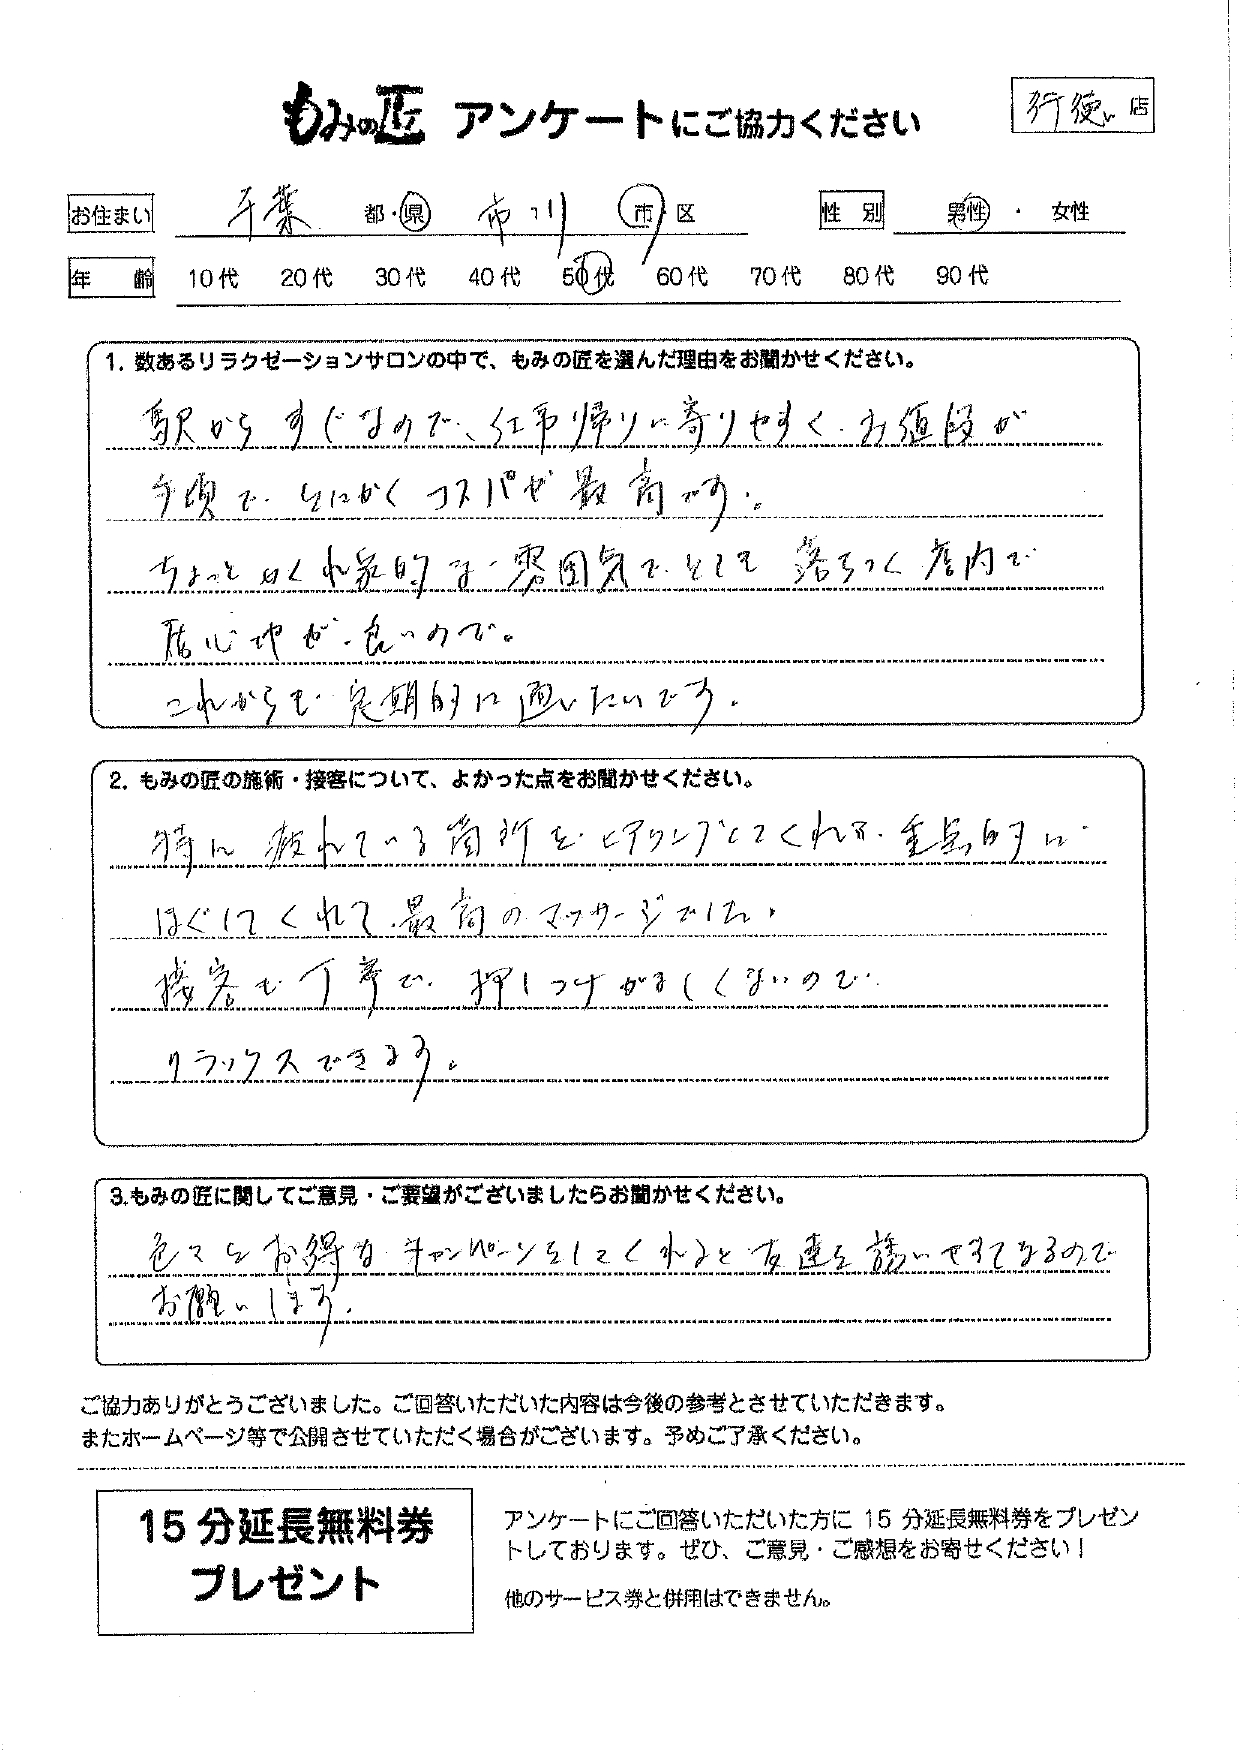 もみの匠 アンケートにご協力ください
行徳 店
お住まい 千葉 都・県 市川 市 区 性別 男性 ・ 女性
年齢 10代 20代 30代 40代 50代 60代 70代 80代 90代
1. 数あるリラクゼーションサロンの中で、もみの匠を選んだ理由をお聞かせください。
駅からすぐなので、仕事帰りに寄りやすく、お値段が
手頃で、とにかくコスパが最高です。
ちょっとかくれ家的な雰囲気で、とても落ちつく店内で
居心地が良いので。
これからも定期的に通いたいです。
2. もみの匠の施術・接客について、よかった点をお聞かせください。
特に疲れている箇所をヒアリングしてくれ、重点的に
ほぐしてくれて、最高のマッサージでした。
接客も丁寧で、押しつけがましくないので
リラックスできます。
3.もみの匠に関してご意見・ご要望がございましたらお聞かせください。
色々とお得なキャンペーンをしてくれると友達を誘いやすくなるので
お願いします。
ご協力ありがとうございました。ご回答いただいた内容は今後の参考とさせていただきます。
またホームページ等で公開させていただく場合がございます。予めご了承ください。
15分延長無料券
プレゼント
アンケートにご回答いただいた方に 15 分延長無料券をプレゼン
トしております。ぜひ、ご意見・ご感想をお寄せください！
他のサービス券と併用はできません。